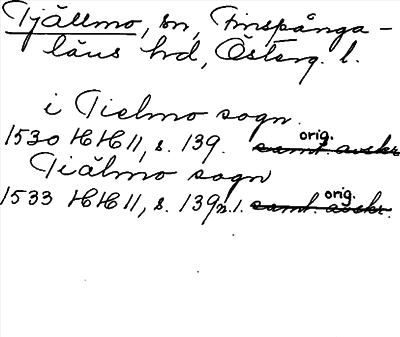 Tjällmo, sn, Finspånga-
läns hd, Österg. l.
i Tielmo sogn.
1530 HH 11, s. 139. samt. avskr. orig.
Tiälmo sogn
1533 HH 11, s. 139 n. 1. samt. avskr. orig.